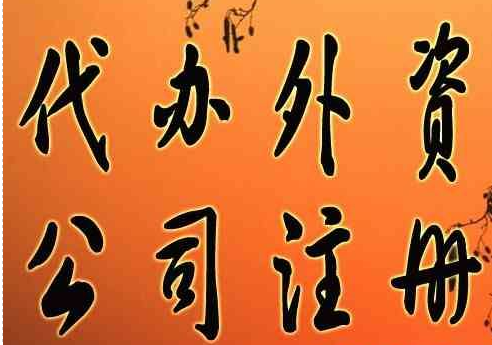 代办外資
公司注册